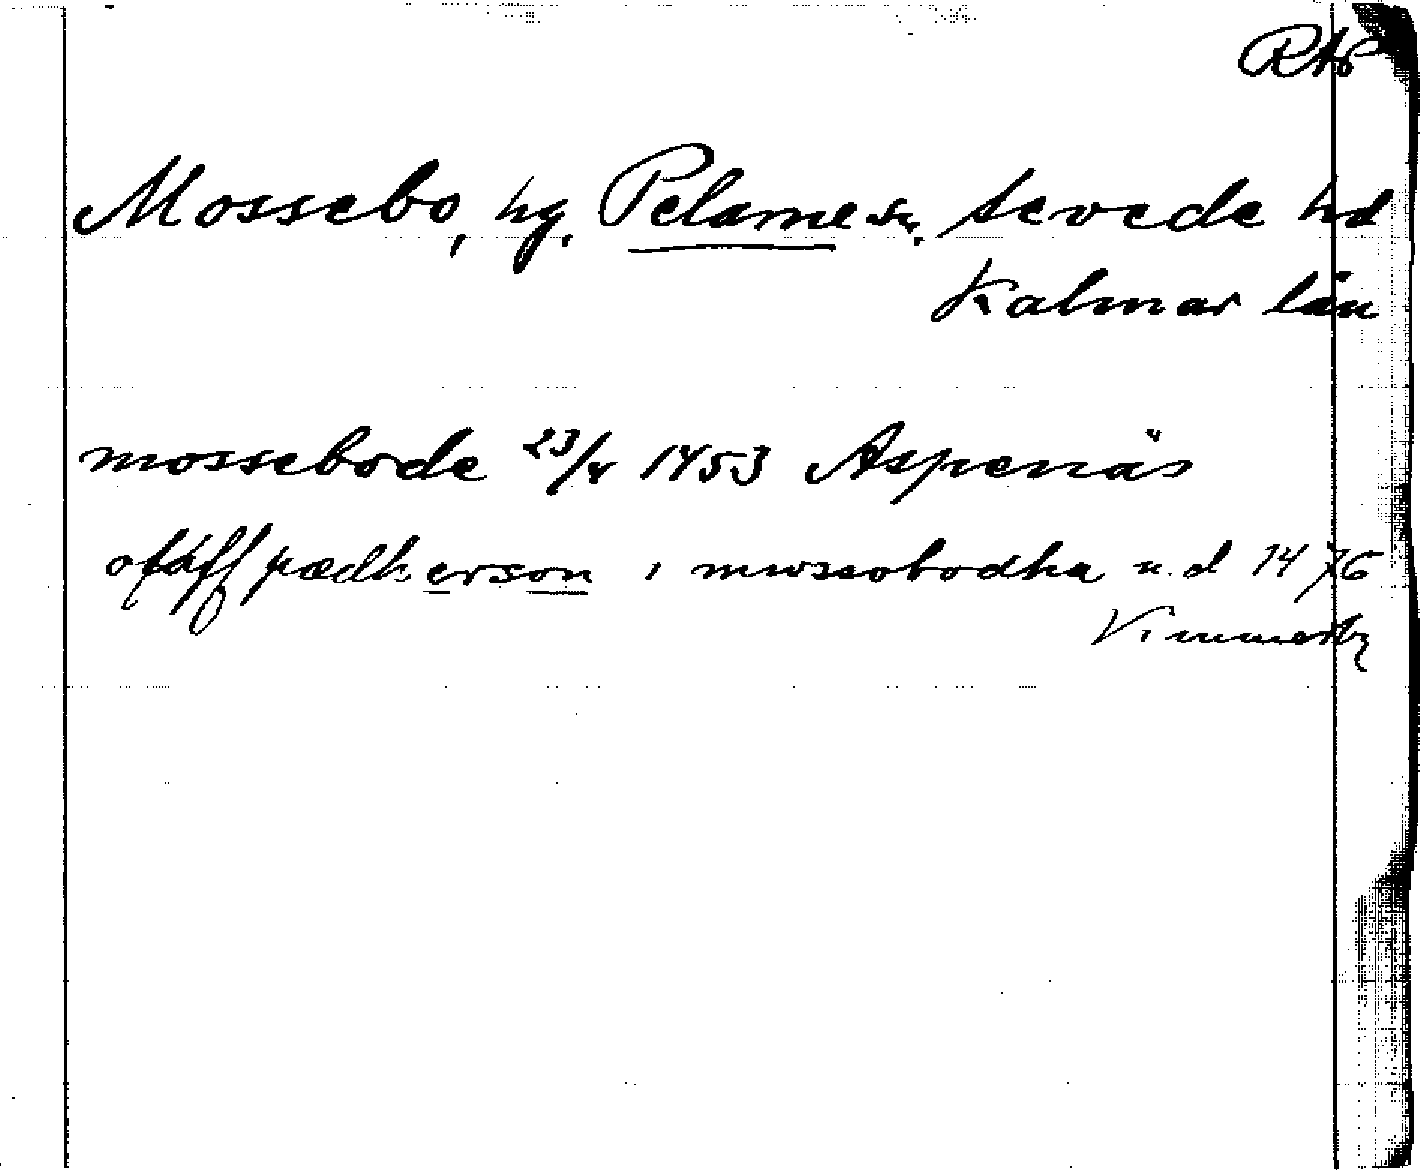 RAp
Mossebo, hg, Pelarne sn, Sevede hd
Kalmar län
mossebode 23/4 1453 Aspenäs
olaff pædherson i mwseobodha u.d 1476
Vimmerby